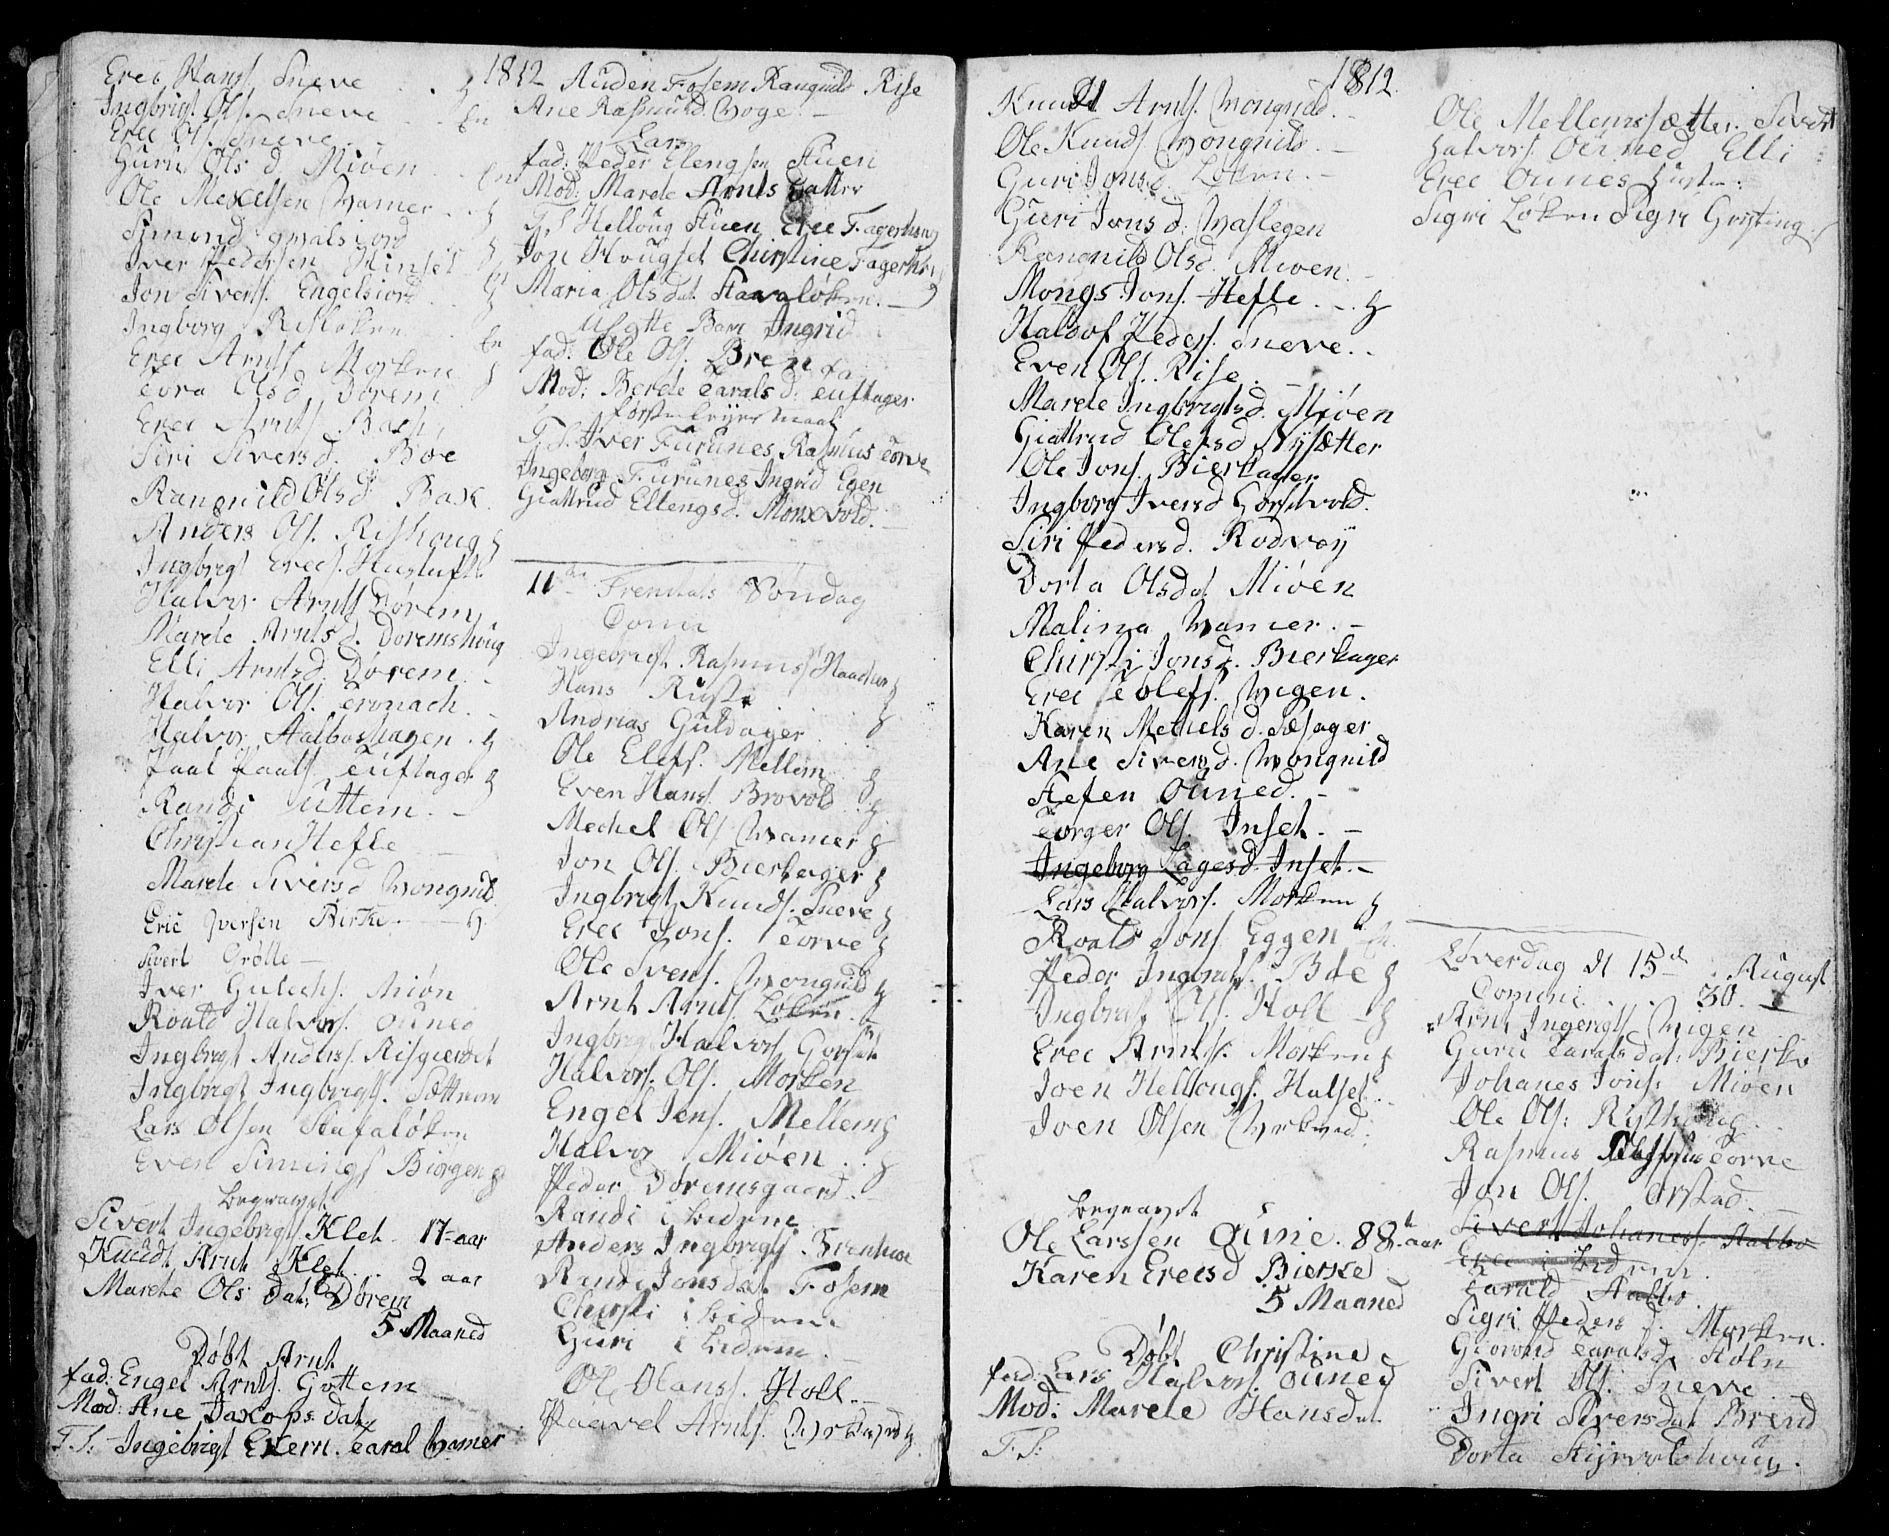 1812
Erec Hans. Sneve
Ingbrigt Ols. Sneve
Erec Ols. Sneve
Guru Ols d Miøen
Ole Mexelsen Wamer
Simond
Iver Pedersen Hinset
Jon Siverts. Engelsiord
Ingborg Risløken
Erec Arnts. Morken
Tora Ols d Dørem
Erec Arnts. Bach
Siri Sivers d. Bøe
Ranquild Ols d Bak
Anders Ols. Rishoug
Ingbrigt Erecs.
Halvor Arnts Dørem
Marele Arnts d. Doremshoug
Elli Arnts d. Dørem
Halvor Ols. Tronach
Halvor Aalboshagen
Paal Paals Tuftager
Randi Uttem
Christian Hefle
Marele Sivers d Wongnild
Eric Iversen Birke
Sivert Grøtte
Iver Gulechs. Miøn
Roald Halvors. Ouned
Ingbrigt Anders. Risgierdet
Ingbrigt Ingbrigts. Sættrem
Lars Olsen Stafaløken
Even Simings Biørgen
begravet
Sivert Ingebrigts. Klet 17 aar
Knudt Arnt. Klet 2 aar
Marete Ols dat: Dørem
5 Maaned
Døbt Arnt
fad: Engel Arnts. Gottem
Mod: Ane Jaxops dat.
F. S: Ingebrigt Ekern. Taral Wamer
Auden Fosem Ranquild Rise
Ane Rasmusd. Woge
Lars
fad: Peder Elengsen Stuen
Mod: Marele Arnts datter
F. S Helloug Stuen Erec Fagerhoug
Jon Hougset Christine Fagerhoug
Maria Olsdat Stavaløken
Usgtte Barn Ingrid
fad: Ole Ols. Brenna
Mod: Berete Tarals d. Tuftager
første Leyermaal
F. S. Iver Furunes Rasmus Torve
Ingeborg Furunes Ingrid Egen
Giøttrud Ellengs d. Monxvold
11te Trenitats Søndag
Comu
Ingebrigt Rasmus
Hans Ruste
Andreas Guldager
Ole Elefs. Mellem
Even Hans. Brovold
Mechel Ols Wamer
Jon Ols. Bierkager
Ingbrigt Knuds. Sneve
Erec Jons. Torve
Ole Svens. Wongnild
Arnt Arnts. Løken
Ingbrigt Halvors Gorset
Halvor Ols. Morken
Engel Jens. Mellem
Halvor Miøen
Peder Doremsgaard
Randi ibidem
Anders Ingbrigts.
Randi Jons dat. Fosem
Christi ibidem
Guri ibidem
Ole Hans. Holl
Paavel Arnts.
1812
Knudt Arnts. Wongnild
Ole Knuds Wongnild
Guri Jonsd. Løken
Guri Jons d. Waslegen
Rangnild Olsd. Miøen
Mongs Jons. Hefle
Haldof Peders. Sneve
Even Ols. Rise
Marele Ingbrigtsd. Miøen
Giøttrud Olefs d Nysætter
Ole Jons. Bierkager
Ingborg Ivers d Gorsetvold
Siri Peders d. Rodvøy
Dorta Olsdat Miøen
Malina Wamer
Chirsti Jons d. Bierkager
Erec Tolefs. Wigen
Karen Mechels d. Sæsager
Ane Sivers d. Wongnild
Stefen Ouned
Torger Ols. Inset
Ingeborg Lages d. Inset
Lars Halvors. Morken
Roald Jons. Eggen
Peder Ingbrigts. Bøe
Ingbrigt Ols. Holl
Erec Arnts. Morken
Joen Hellougs. Halset
Joen Olsen
begravet
Ole Larssen Ounie. 88 aar
Karen Erecs d Bierke
5 Maaned
Døbt Christine
fad: Lars Halvors. Ouned
Mod: Marele Hansdat
F. S:
Ole Mellemsætter. Sivert
Halvors. Ouned Elli
Erec Ounes
Sigri Løken Sigri Gorsting
Løverdag d 15de August
Comuni 30
Arnt Ingebrigts Wigen
Guru Tarals dat. Bierke
Johanes Jons. Miøen
Ole Ols:
Rasmus Torve
Jon Ols. Orstad
Sivert Johanes. Aalbo
Erec ibidem
Tarald Aalbo
Sigri Peders d. Morken
Giørond Tarals d. Støln
Sivert Ols. Sneve
Ingri Siversdat Brend
Dorta Styrvoldhoug